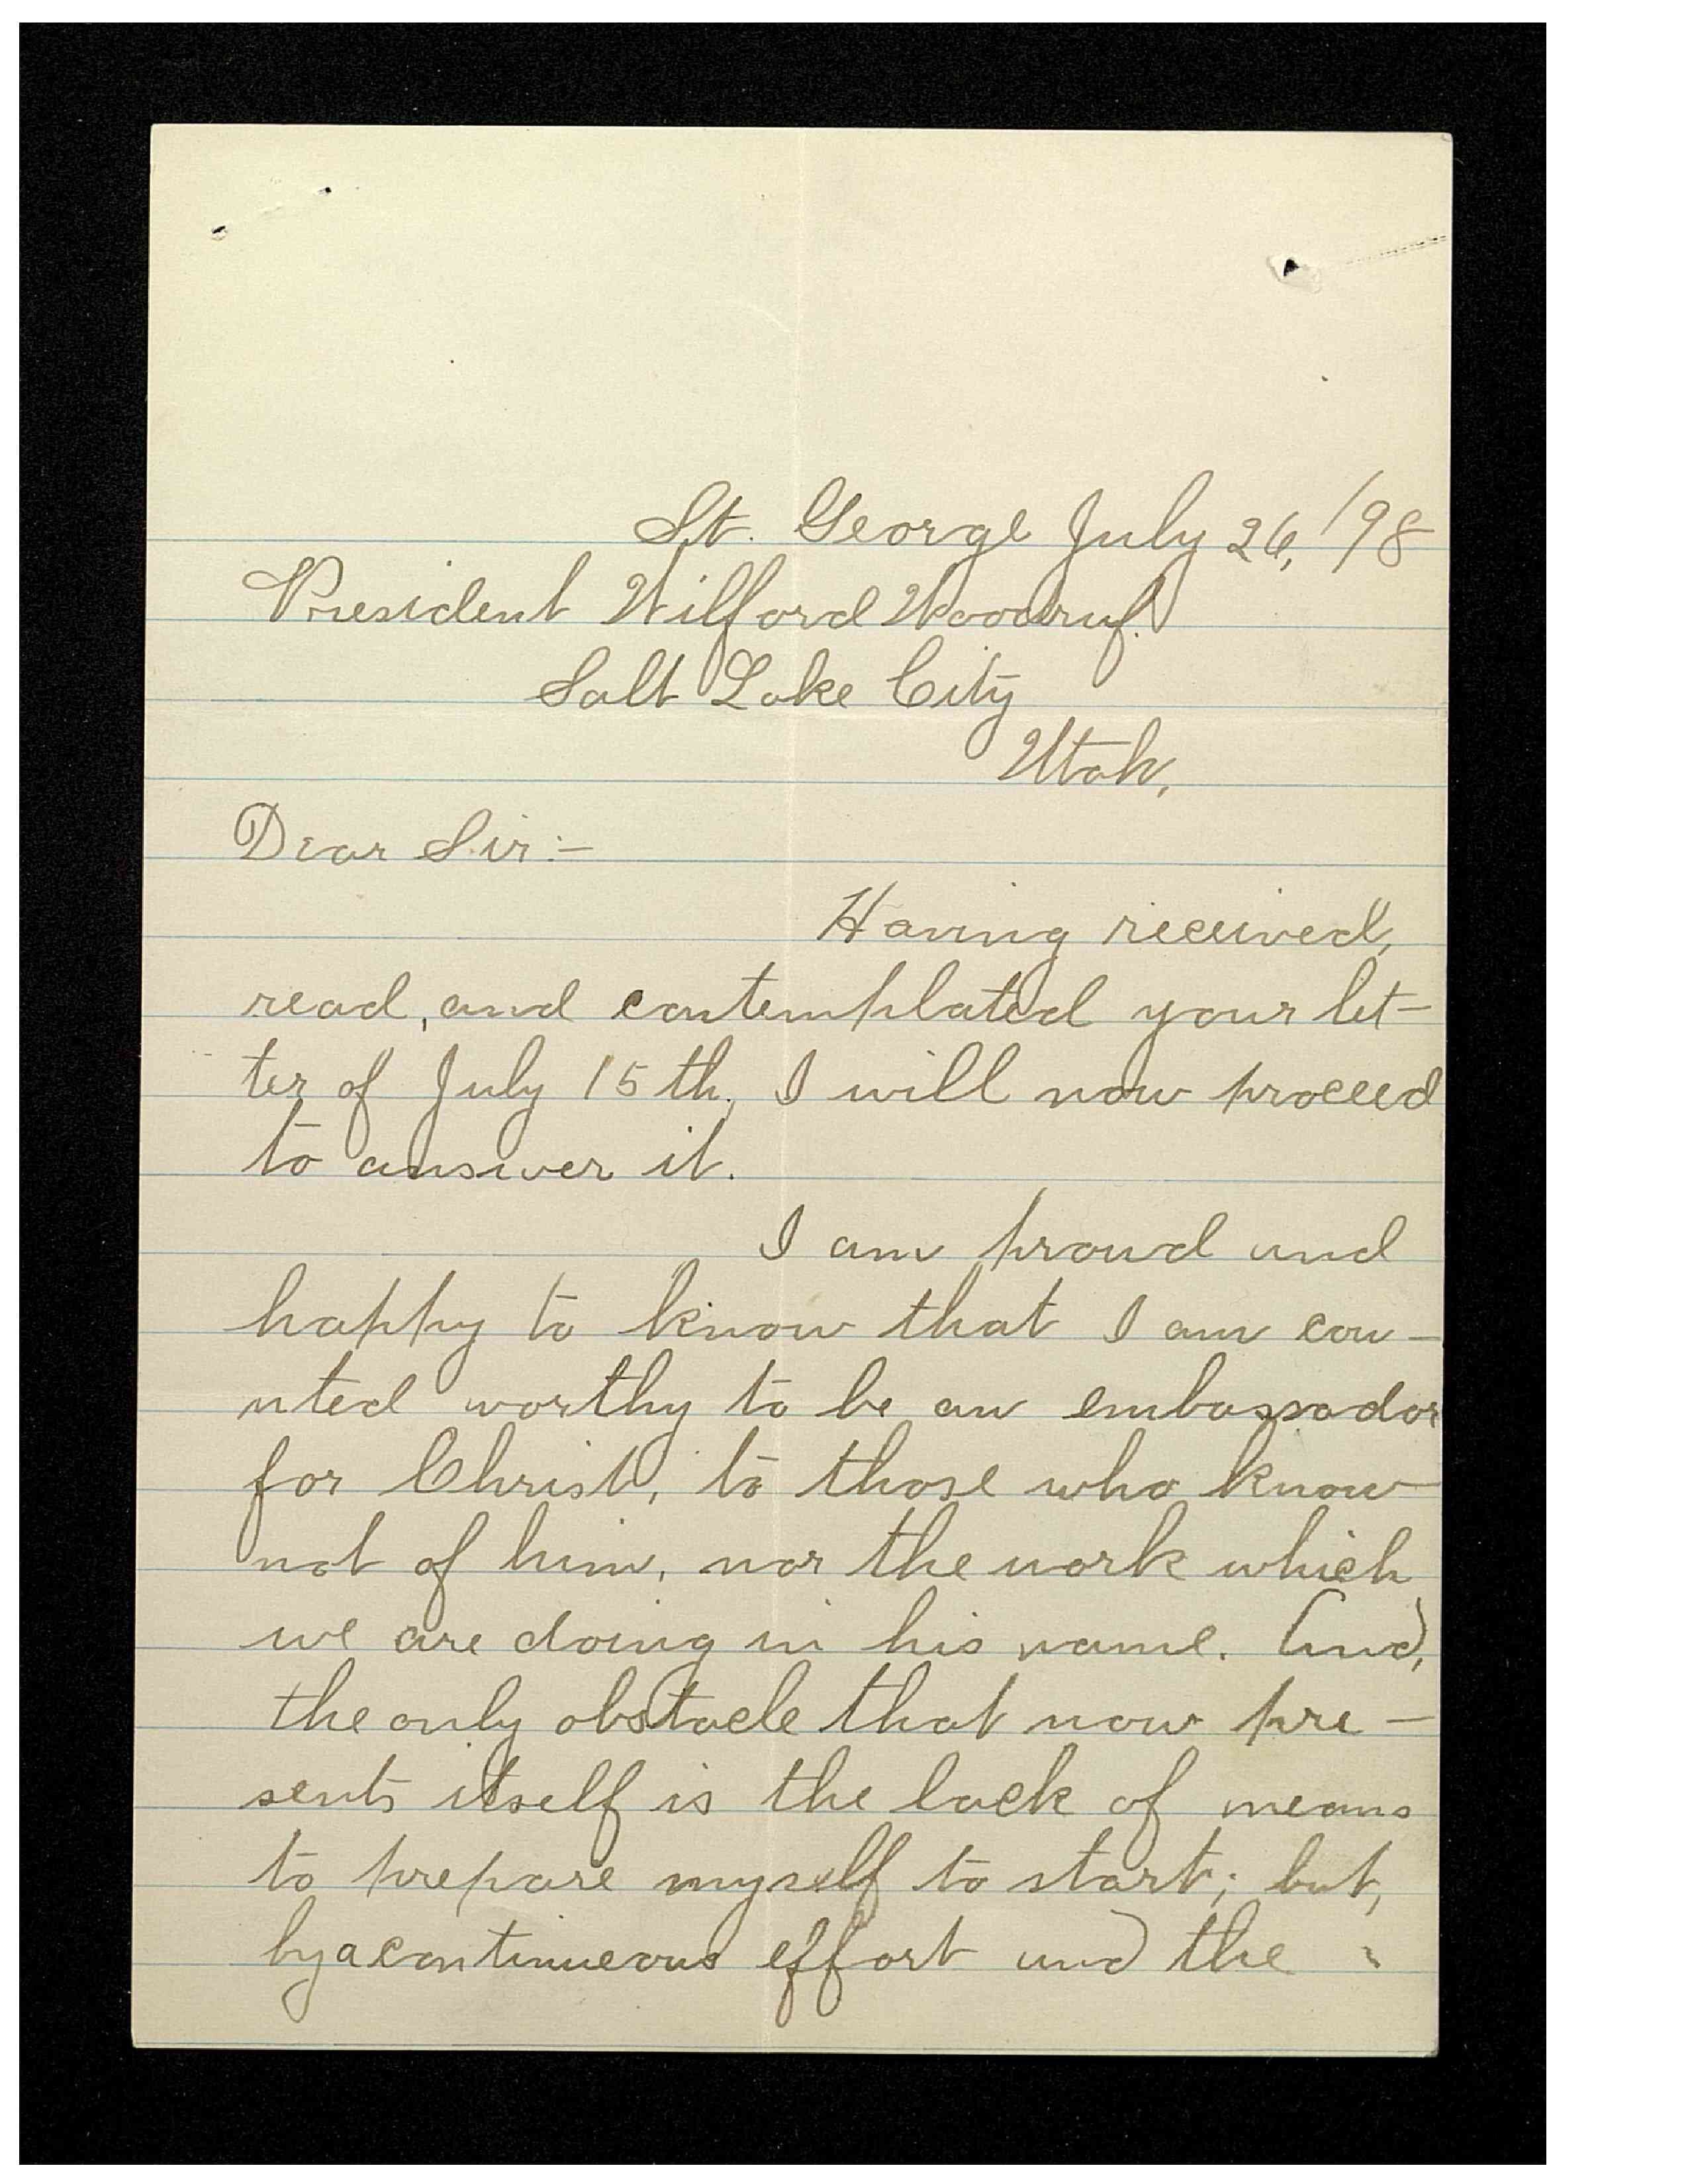 St. George July 26, /98
President Wilford Woodruf.
Salt Lake City
Utah,
Dear Sir:-
Having received,
read, and contemplated your let-
ter of July 15th, I will now proceed
to answer it.
I am proud and
happy to know that I am cou-
nted worthy to be an embassador
for Christ, to those who know
not of him, nor the work which
we are doing in his name. And,
the only obstacle that now pre-
sents itself is the lack of means
to prepare myself to start; but,
by a continueous effort and the